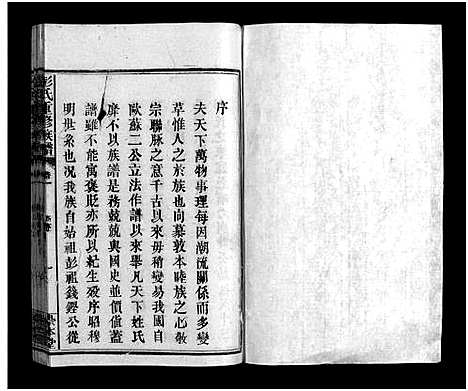 序
夫天下萬物事理每因潮流關係而多變
革惟人之於族也向募敦本睦族之心敬
宗聯脉之意千古以來毋稍變易我國自
歐蘇二公立法作譜以來舉凡天下姓氏
靡不以族譜是務兢兢與國史並價値葢
譜雖不能寓褒貶亦所以紀生歿序昭穆
明世系也况我族自始祖彭祖籛鏗公從
彭氏重修族譜